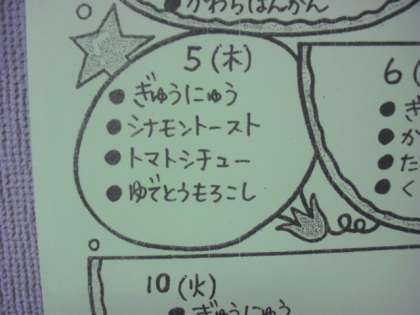 ●かわちばんかん
5(木)
●ぎゅうにゅう
●シナモントースト
●トマトシチュー
●ゆでとうもろこし
6(
●ぎ
●か
●た
●く
10(火)
●ぎゅうにゅう